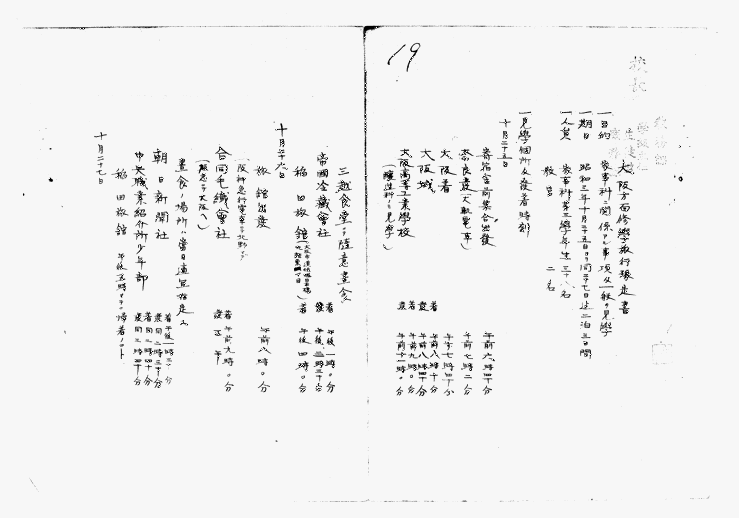 19
大阪方面修學旅行豫定書
一目的 家事科ニ関係アル事項及一般ノ見學
一期日 昭和三年十月二十五日ヨリ同二十七日迄二泊三日間
一人員 家事科第三學年生三十八名
教官 二名
一見學個所及發着時刻
十月二十五日
寄宿舎前集合出發 午前六時四十分
奈良發(大軌電車) 午前七時二分
大阪着 午前七時四十分
大阪城 着 午前八時十分
發 午前八時四十分
大阪高等工業學校 着 午前九時〇分
(釀造科ヲ見學) 發 午前十一時〇分
三越食堂ニテ随意晝食
帝國冷藏會社 着 午後一時〇分
發 午後三時三十分
稲田旅館 着 午後四時〇分
十月二十六日
旅館出發 午前八時〇分
(阪神急行電車ニテ北野ヨリ)
合同毛織會社 着 午前九時〇分
(随意ニテ大阪ヘ) 發 正午
晝食ノ場所ハ當日適宜指定ス
朝日新聞社 着 午後一時三十分
發 同二時三十分
中央職業紹介所少年部 着 同二時四十分
發 同三時四十分
稲田旅館 午後五時マデニ帰着ノコト
十月二十七日